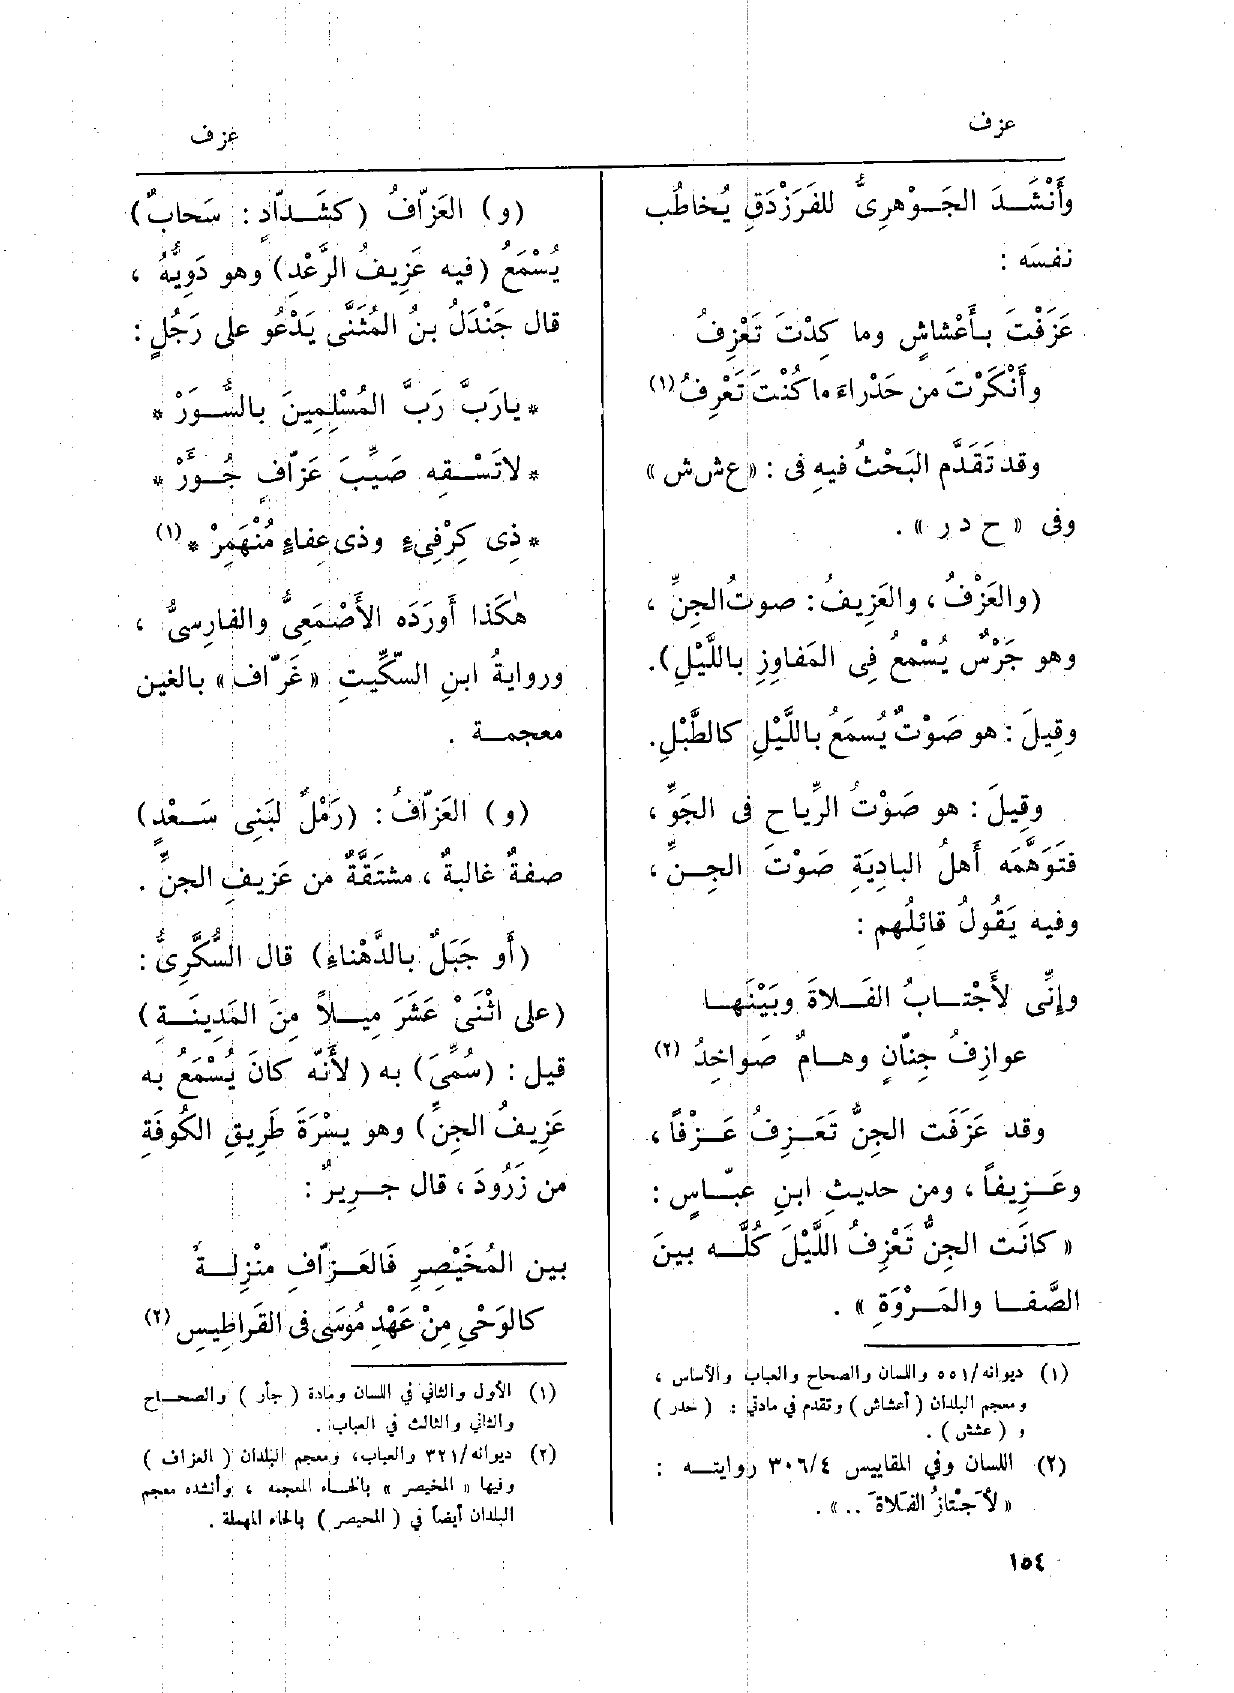 عزف
عزف
وأَنْشَدَ الجَوْهرِىُّ للفَرَزْدَقِ يُخاطُب
نفسَه :
عَزَفْتَ بأَعْشاشٍ وما كِدْتَ تَعْزِفُ
وأَنْكَرْتَ من حَدْراءَ ما كُنْتَ تَعْرِفُ (١)
وقد تَقَدَّم البَحْثُ فيهِ فى : « ع ش ش »
وفى « ح د ر » .
(والعَزْفُ ، والعَزِيفُ : صوتُ الجِنِّ ،
وهو جَرْسٌ يُسْمعُ فِى المَفاوِزِ بِاللَّيْلِ).
وقِيلَ : هو صَوْتٌ يُسمَعُ بِاللَّيْلِ كالطَّبْلِ.
وقِيلَ : هو صَوْتُ الرِّياحِ فى الجَوِّ ،
فتَوَهَّمَه أَهلُ البادِيَةِ صَوْتَ الجِنِّ ،
وفيه يَقُولُ قائِلُهم :
وإِنِّى لأَجْتابُ الفَلاةَ وبَيْنَها
عوازِفُ جِنّانٍ وهامٌ صَواخِدُ (٢)
وقد عَزَفَت الجِنُّ تَعَزِفُ عَزْفاً ،
وعَزِيفاً ، ومن حديثِ ابنِ عبّاسٍ :
« كانَت الجِنُّ تَعْزِفُ اللَّيْلَ كُلَّه بينَ
الصَّفا والمَرْوَةِ » .
(١) ديوانه/٥٥١ واللسان والصحاح والعباب والأساس ،
ومعجم البلدان ( أعشاش ) وتقدم في مادتي : ( حدر )
و ( عشش ) .
(٢) اللسان وفي المقاييس ٣٠٦/٤ روايته :
« لأَجْتازُ الفَلاةَ .. » .
(و) العَزّافُ (كشَدادٍ : سَحابٌ)
يُسْمَعُ (فيه عَزِيفُ الرَّعْدِ) وهو دَوِيُّهُ ،
قال جَنْدَلُ بنُ المُثَنَّى يَدْعُو على رَجُلٍ :
* يارَبَّ رَبَّ المُسْلِمِينَ بالسُّوَرْ *
* لاتَسْقِه صَيِّبَ عَزّافٍ جُؤَرْ *
* ذِى كِرْفِىءٍ وذى عِفاءٍ مُنْهَمِرْ * (١)
هكَذا أَورَدَه الأَصْمَعِىُّ والفارِسىُّ ،
وروايةُ ابنِ السِّكِّيتِ « غَرّاف » بالغين
معجمة .
(و) العَزّافُ : (رَمْلٌ لبَنِى سَعْدٍ)
صفةٌ غالبةٌ ، مشتَقَّةٌ من عَزِيفِ الجنِّ .
(أَو جَبَلٌ بالدَّهْناءِ) قال السُّكَّرِىُّ :
(على اثْنَىْ عَشَرَ مِيلاً مِنَ المَدِينَةِ)
قيل : (سُمِّىَ) به ( لأَنَّه كانَ يُسْمَعُ به
عَزِيفُ الجِنِّ) وهو يسْرَةَ طَرِيقِ الكُوفَةِ
من زَرُودَ ، قال جريرٌ :
بين المُخَيْصِرِ فَالعَزّافِ منْزِلةٌ
كالوَحْيِ مِنْ عَهْدِ مُوسَى فى القَراطِيس (٢)
(١) الأول والثاني في اللسان ومادة ( جأر ) والصحاح
والثاني والثالث في العباب .
(٢) ديوانه/٣٢١ والعباب، ومعجم البلدان ( العزاف )
وفيها « المخيصر » بالخاء المعجمه ، وأنشده معجم
البلدان أيضاً في ( المحيصر ) بالحاء المهملة .
١٥٤